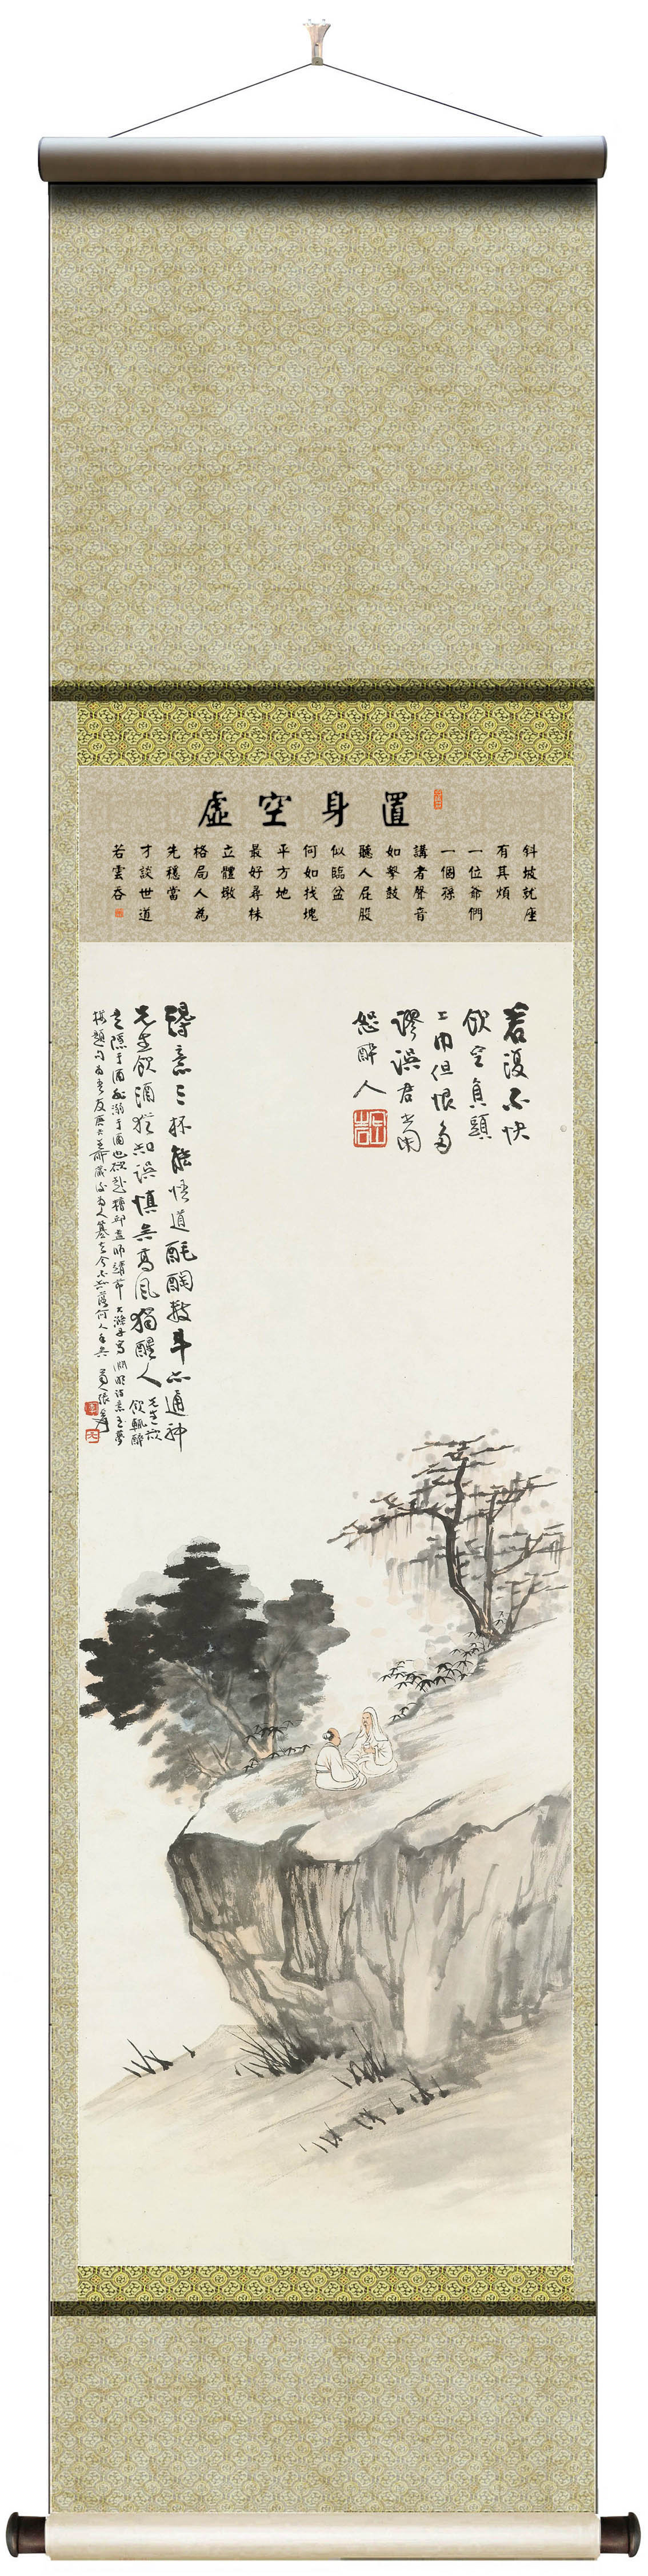 置身空虛
斜坡就座
有其煩
一位爺們
一個孫
講者聲音
如擊鼓
聽人屁股
似臨盆
何如找塊
平方地
最好尋株
立體墩
格局人為
先穩當
才談世道
若雲吞
若復不快
飲空負頭
上巾但恨多
謬誤君當
恕醉人
得意三杯能悟道酕醄數斗亦通神
先生飲酒猶知誤慎無高風獨醒人